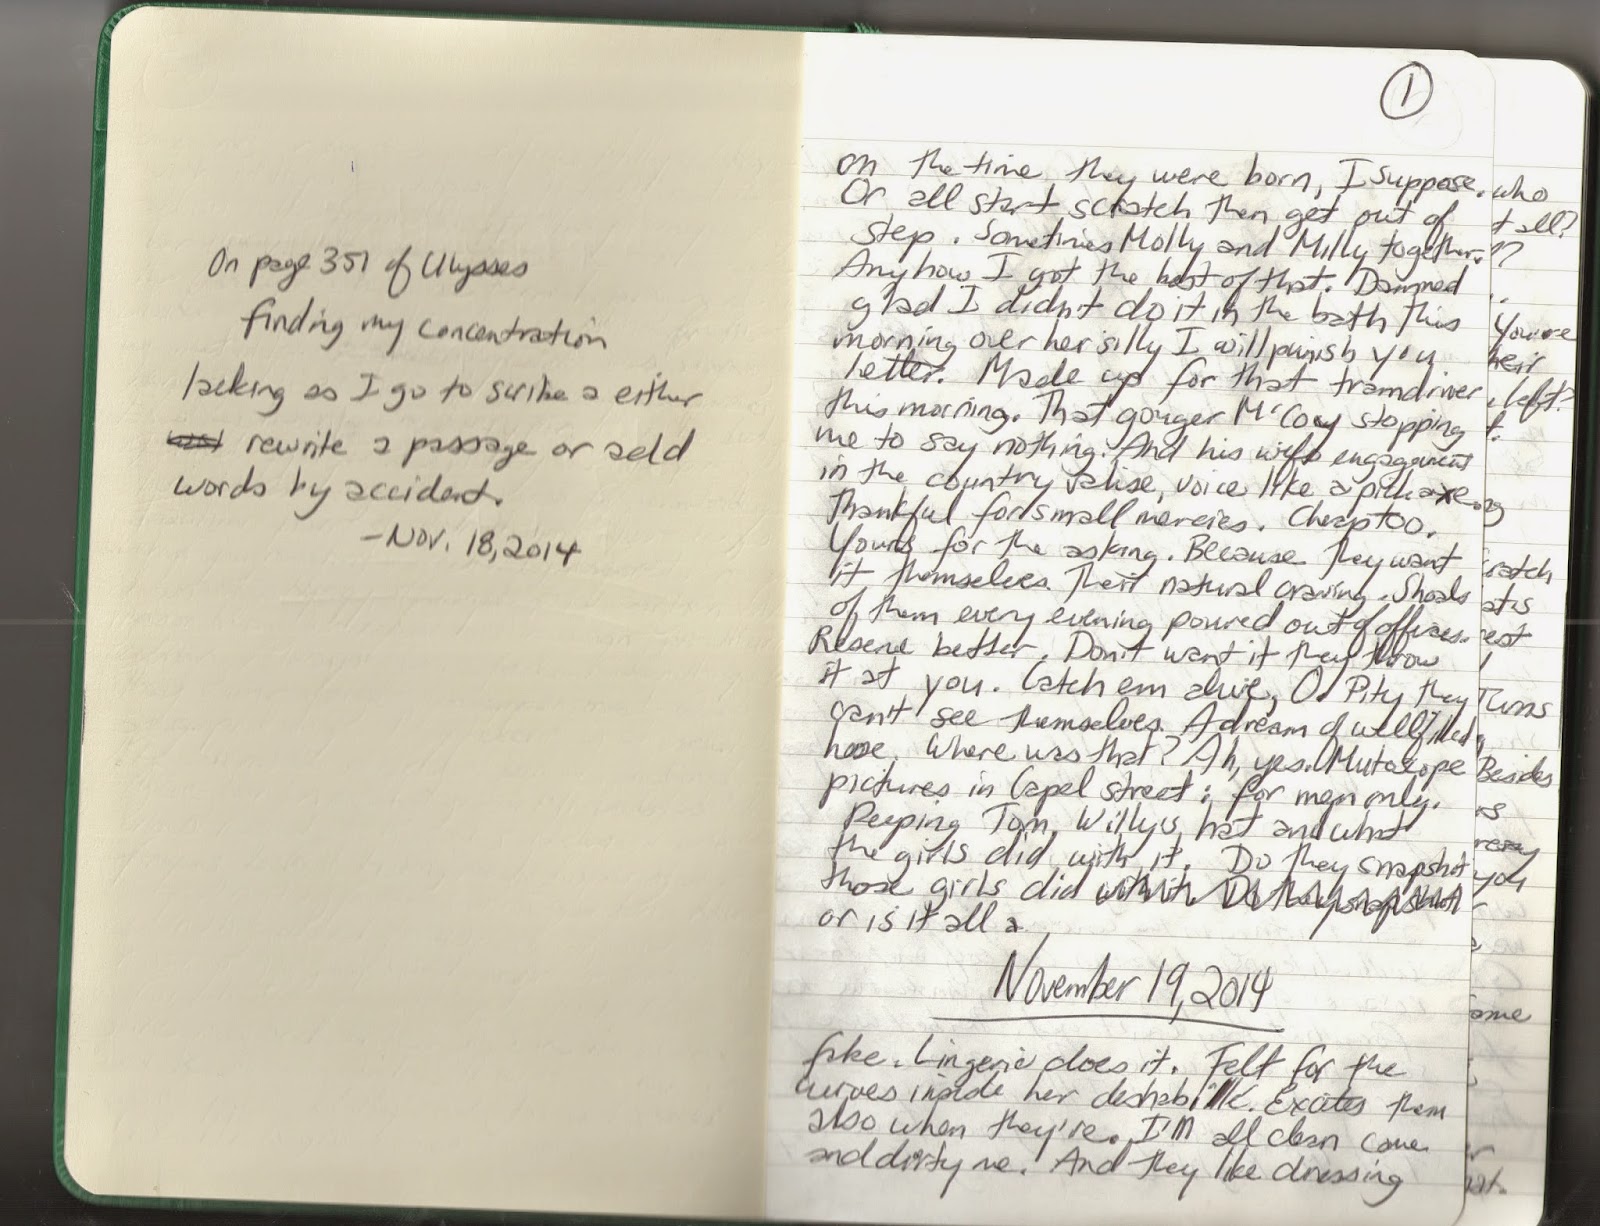 On page 351 of Ulysses
finding my concentration
lacking as I go to scribe a either
rewrite a passage or add
words by accident.
-Nov. 18, 2014
1
on the time they were born, I suppose.
Or all start scratch then get out of
step. Sometimes Molly and Milly together.
Anyhow I got the best of that. Damned
glad I didn't do it in the bath this
morning over her silly I will punish you
letter. Made up for that tramdriver
this morning. That gouger M'Coy stopping
me to say nothing. And his wife engagement
in the country valise, voice like a pickaxe.
Thankful for small mercies. Cheap too.
Yours for the asking. Because they want
it themselves. Their natural craving. Shoals
of them every evening poured out of offices.
Reserve better. Don't want it they throw
it at you. Catch em alive, O. Pity they
can't see themselves. A dream of wellfilled
hose. Where was that? Ah, yes. Mutoscope
pictures in Capel street: for men only.
Peeping Tom, Willy's hat and what
the girls did with it. Do they snapshot
those girls did
or is it all a
November 19, 2014
fake. Lingerie does it. Felt for the
curves inside her deshabille. Excites them
also when they're. I'm all clean come
and dirty me. And they like dressing
who
t all?
??
You're
heir
left?
t.
ng
cratch
at is
rest
Turns
Besides
rs
you
ame